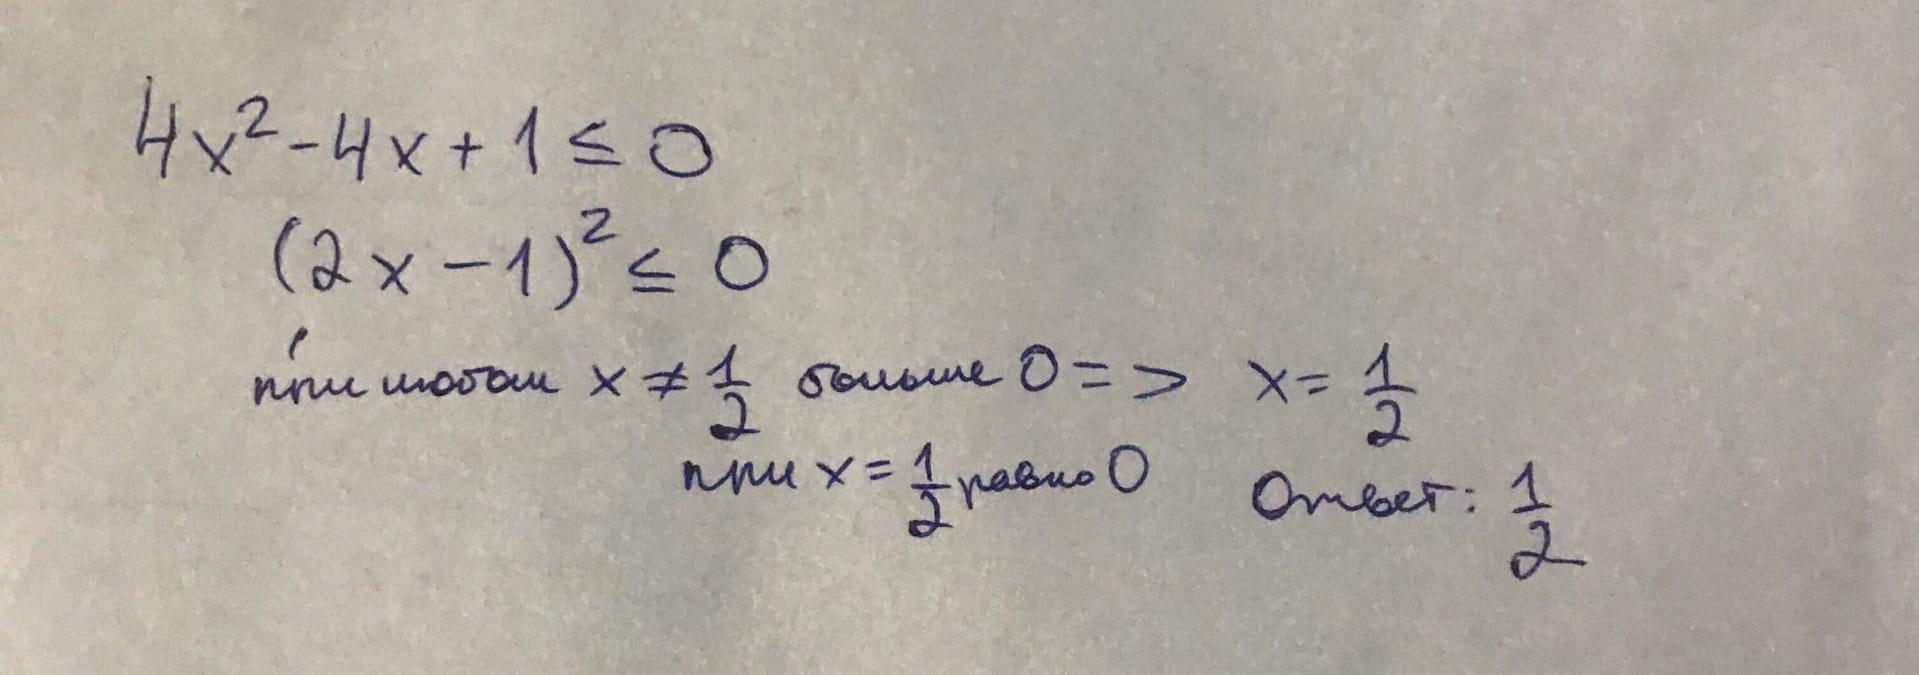 4x² - 4x + 1 ≤ 0
(2x - 1)² ≤ 0
при любом x ≠ 1/2 больше 0 => x = 1/2
при x = 1/2 равно 0 Ответ: 1/2